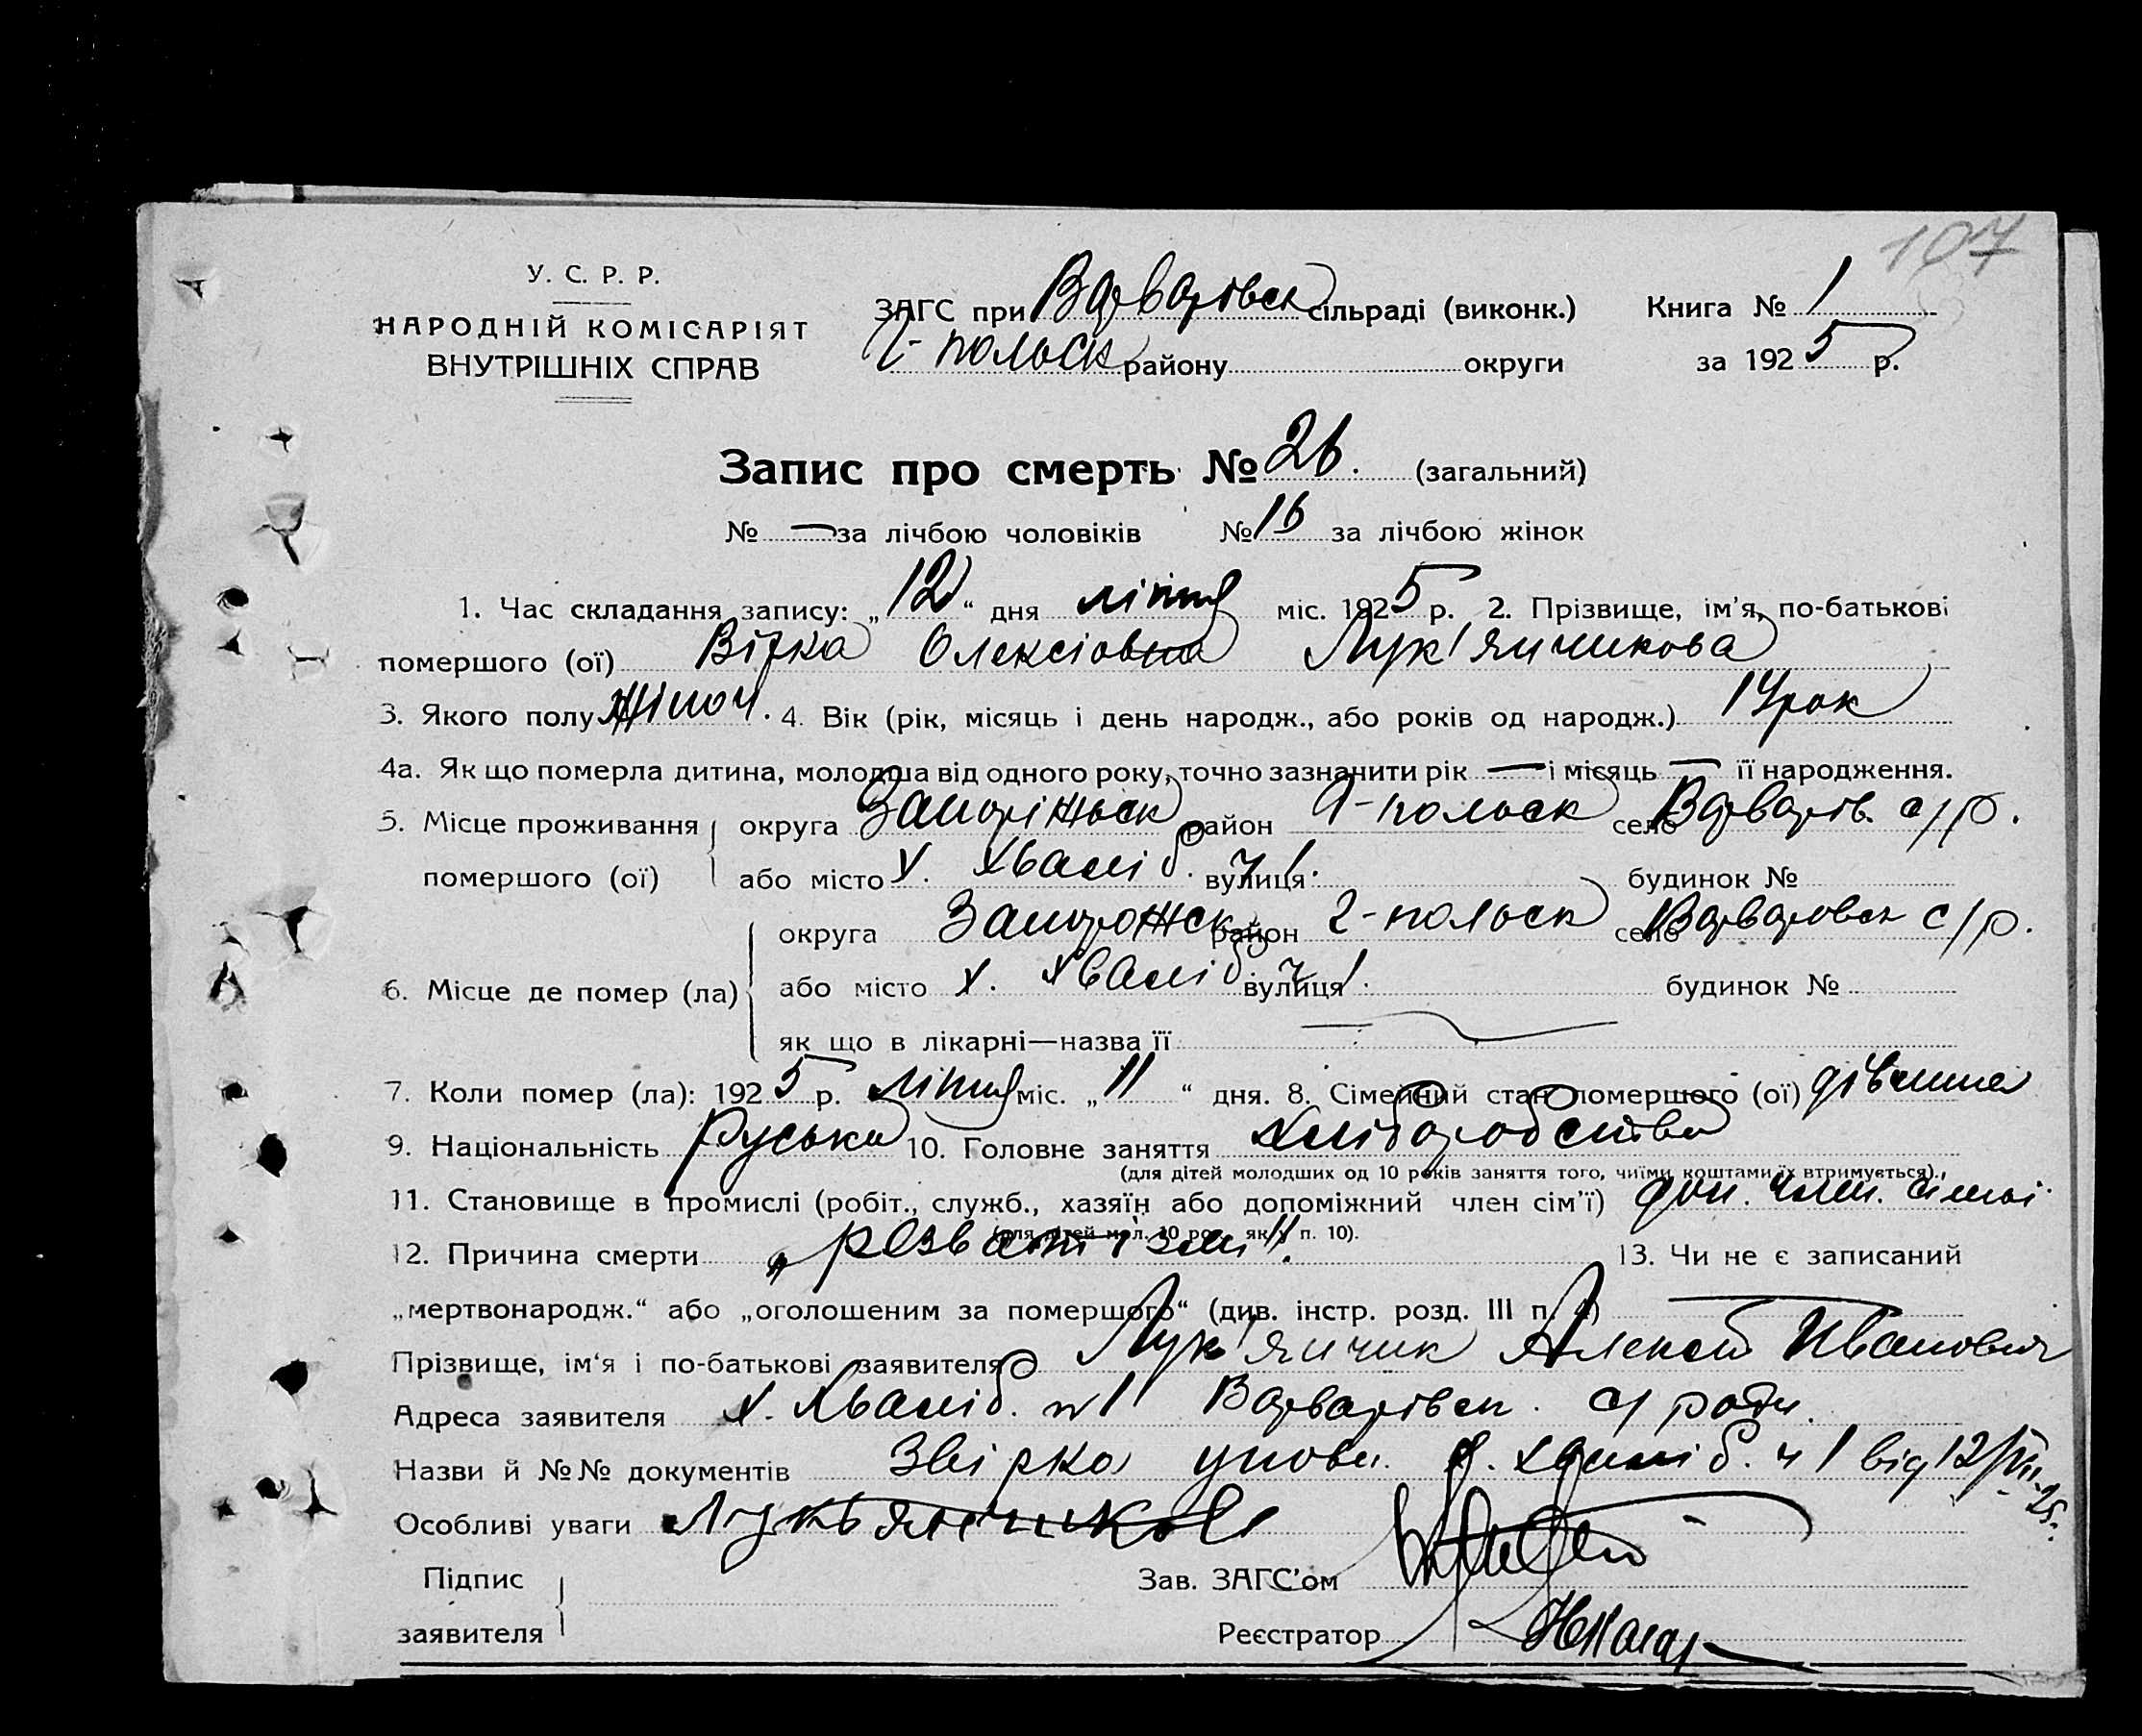 107
У. С. Р. Р.
НАРОДНІЙ КОМІСАРІЯТ
ВНУТРІШНІХ СПРАВ
ЗАГС при Варварівск сільраді (виконк.) Книга № 1
Г-польск району округи за 1925 р.
Запис про смерть № 26. (загальний)
№ — за лічбою чоловіків № 16 за лічбою жінок
1. Час складання запису: „12“ дня липня міс. 1925 р. 2. Прізвище, ім'я, по-батькові
помершого (ої) Вірка Олексіовна Лук'янчикова
3. Якого полу жіноч. 4. Вік (рік, місяць і день народж., або років од народж.) 14 рок
4а. Як що померла дитина, молодша від одного року, точно зазначити рік — і місяць — її народження.
5. Місце проживання округа Запоріжськ район Г-польск село Варварів. с/р.
помершого (ої) або місто х. Хваліб. ч 1. вулиця будинок №
округа Запорожск район Г-польск село Варваровск с/р.
6. Місце де помер (ла) або місто х. Хваліб. ч 1. вулиця будинок №
як що в лікарні—назва її —
7. Коли помер (ла): 1925 р. липня міс. „11“ дня. 8. Сімейний стан помершого (ої) дівчина
9. Національність руська 10. Головне заняття хліборобство
(для дітей молодших од 10 років заняття того, чиїми коштами їх втримується).
11. Становище в промислі (робіт., служб., хазяїн або допоміжний член сім'ї) доп. член. сімьї
(для дітей мол. 10 рок. як у п. 10).
12. Причина смерти „ревматізм". 13. Чи не є записаний
„мертвонародж.“ або „оголошеним за помершого“ (див. інстр. розд. III п. ) —
Прізвище, ім'я і по-батькові заявителя Лук'янчик Алексей Иванович
Адреса заявителя х. Хваліб. №1 Варварівск. с/ради.
Назви й №№ документів Звірка упов. х. хваліб. ч 1 від 12/VII-25.
Особливі уваги Лукьянчиков
Підпис Зав. ЗАГС'ом
заявителя Реєстратор